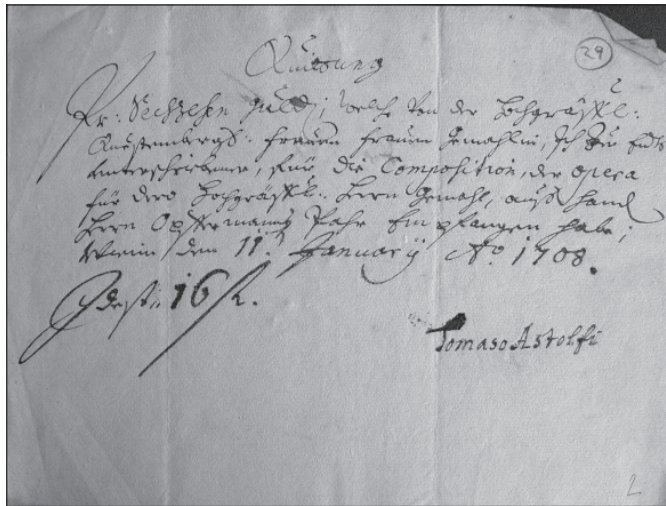 Quittung
29
Pr: Sechzehen guld; welche von der Hochgräffl:
Questenbergs: frauen frauen Gemahlin, Ich zu Endts
unterschriebener, für die Composition, der opera
für dero Hochgräffl: Herrn Gemahl, auß Handt
Herrn Opffermanns Pahr Empfangen habe;
Wienn den 11. January Aº 1708.
Id est 16 fl.
Tomaso Astolfi
2